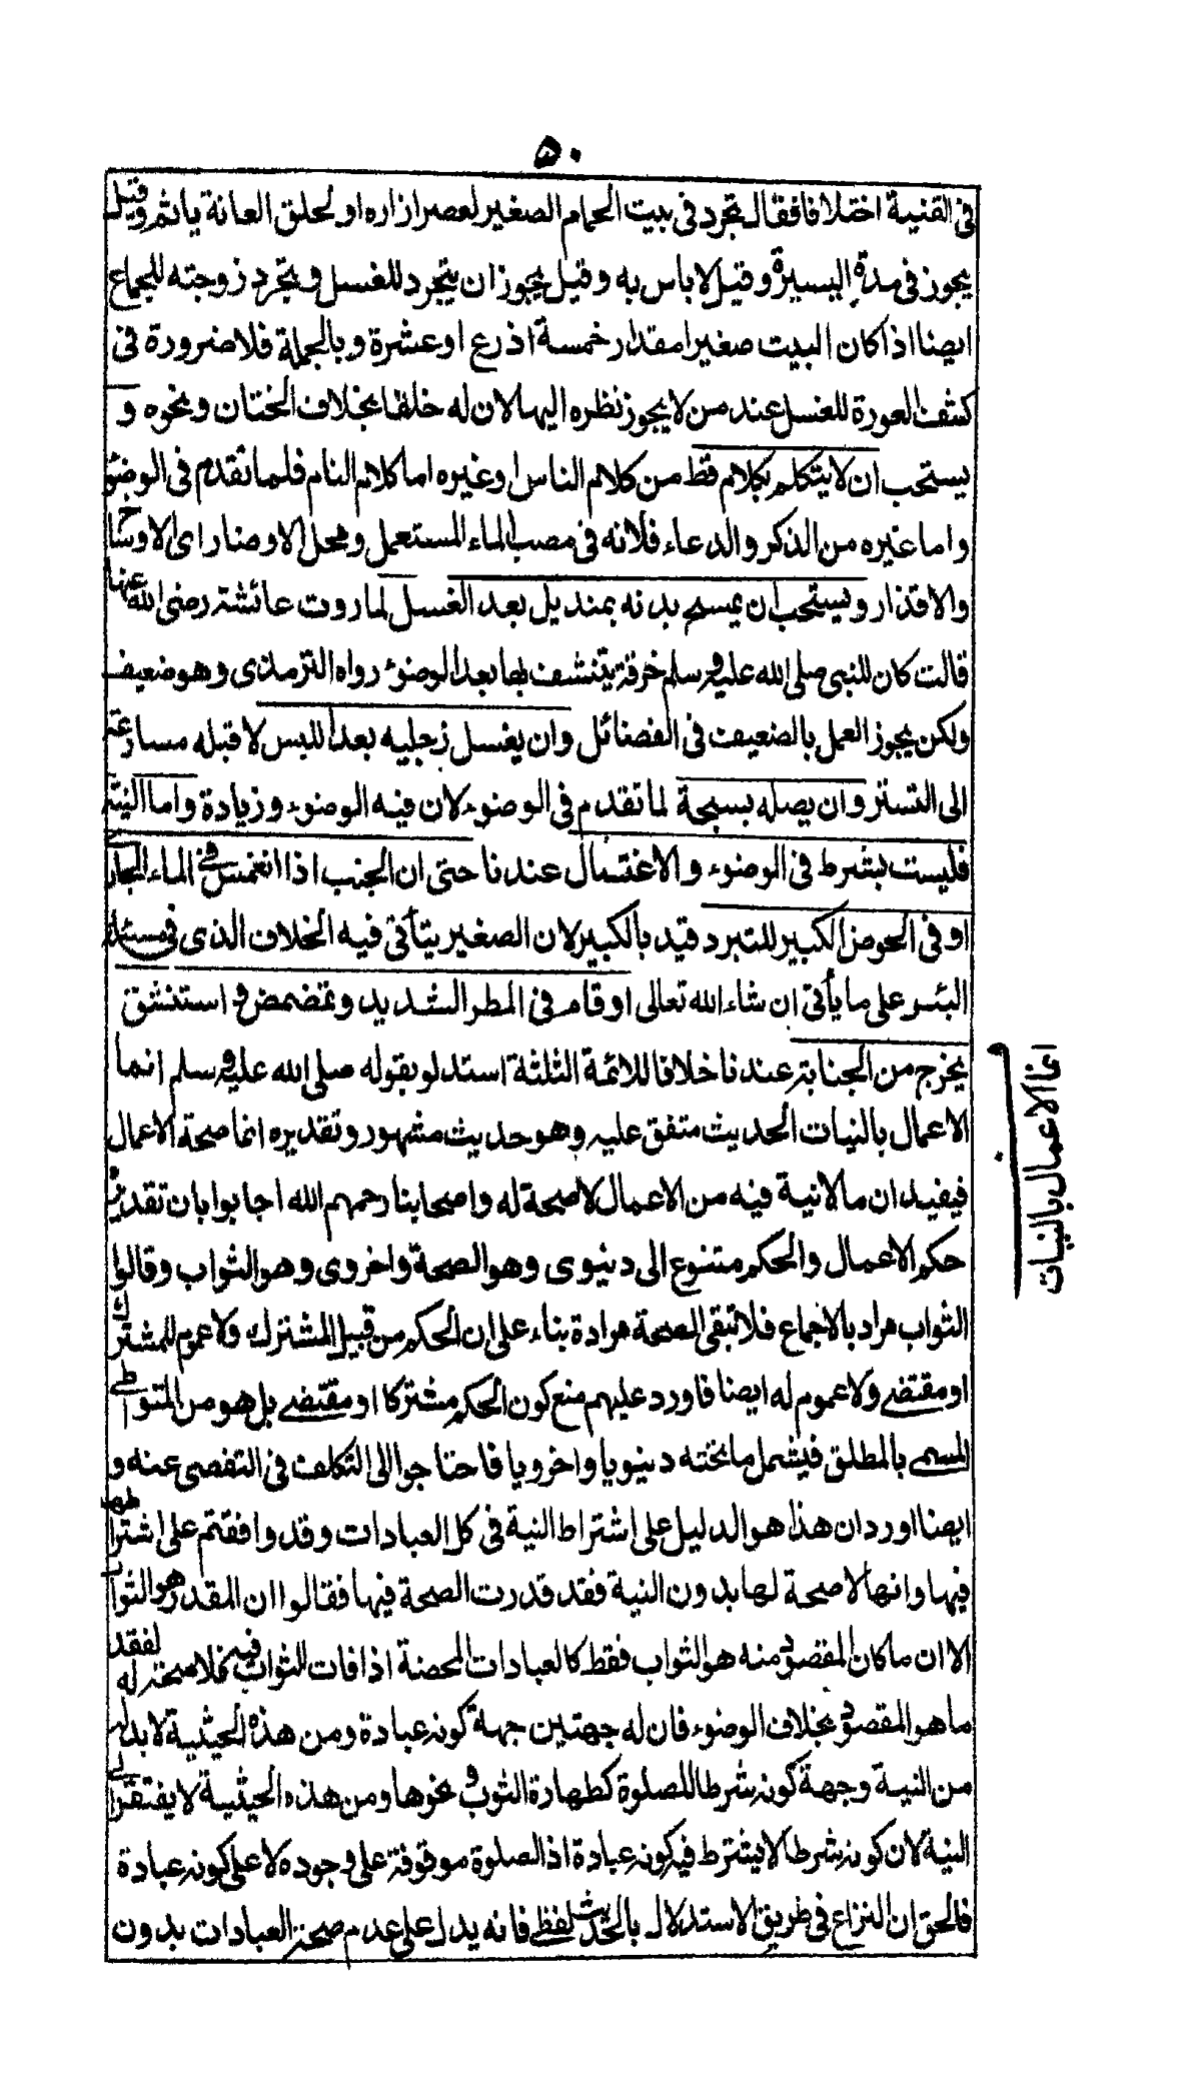 ٥٠
في القنية اختلافا فقال تجرد في بيت الحمام الصغير لعصر ازاره او لحلق العانة ياثم وقيل
يجوز في مدة اليسيرة وقيل لا باس به وقيل يجوز ان يتجرد للغسل وتجرد زوجته للجماع
ايضا اذا كان البيت صغيرا مقدار خمسة اذرع او عشرة وبالجملة فلا ضرورة في
كشف العورة للغسل عند من لا يجوز نظره اليها لان له خلفا بخلاف الختان ونحوه و
يستحب ان لا يتكلم بكلام قط من كلام الناس او غيره اما كلام الناس فلما تقدم في الوضوء
واما غيره من الذكر والدعاء فلانه في مصب الماء المستعمل ومحل الاوضار اى الاوساخ
والاقذار ويستحب ان يمسح بدنه بمنديل بعد الغسل لما روت عائشة رضى الله عنها
قالت كان للنبى صلى الله عليه وسلم خرقة يتنشف بها بعد الوضوء رواه الترمذى وهو ضعيف
ولكن يجوز العمل بالضعيف في الفضائل وان يغسل رجليه بعد اللبس لا قبله مسارعة
الى التستر وان يصله بسبحة لما تقدم في الوضوء لان فيه الوضوء وزيادة واما النية
فليست بشرط في الوضوء والاغتسال عندنا حتى ان الجنب اذا انغمس في الماء الجارى
او في الحوض الكبير للتبرد قيد بالكبير لان الصغير يتأتى فيه الخلاف الذى في مسئلة
البئر على ما يأتى ان شاء الله تعالى او قام في المطر الشديد وتمضمض واستنشق
يخرج من الجنابة عندنا خلافا للائمة الثلثة استدلو بقوله صلى الله عليه وسلم انما
الاعمال بالنيات الحديث متفق عليه وهو حديث مشهور وتقديره انما صحة الاعمال
فيفيد ان ما لا نية فيه من الاعمال لا صحة له واصحابنا رحمهم الله اجابوا بان تقديره
حكم الاعمال والحكم متنوع الى دنيوى وهو الصحة واخروى وهو الثواب وقالوا
الثواب مراد بالاجماع فلا تبقى الصحة مرادة بناء على ان الحكم من قبيل المشترك ولا عموم للمشترك
او مقتضى ولا عموم له ايضا فاورد عليهم منع كون الحكم مشتركا او مقتضى بل هو من المتواطى
المسمى بالمطلق فيشمل ما تحته دينويا واخرويا فاحتاجوا الى التكلف في التفصى عنه و
ايضا اورد ان هذا هو الدليل على اشتراط النية في كل العبادات وقد وافقتم على اشتراطها
فيها وانها لا صحة لها بدون النية فقد قدرت الصحة فيها فقالوا ان المقدر هو الثواب
الا ان ما كان المقصود منه هو الثواب فقط كالعبادات المحضة اذا فات الثواب فيه فلا صحة له لفقد
ما هو المقصود بخلاف الوضوء فان له جهتين جهة كونه عبادة ومن هذه الحيثية لا بد له
من النية وجهة كونه شرطا للصلوة كطهارة الثوب ونحوها ومن هذه الحيثية لا يفتقر الى
النية لان كونه شرطا لا يشترط فيه كونه عبادة اذ الصلوة موقوفة على وجوده لا على كونه عبادة
فالحق ان النزاع في طريق الاستدلال بالحديث لفظى فانه يدل على عدم صحة العبادات بدون
انما الاعمال بالنيات